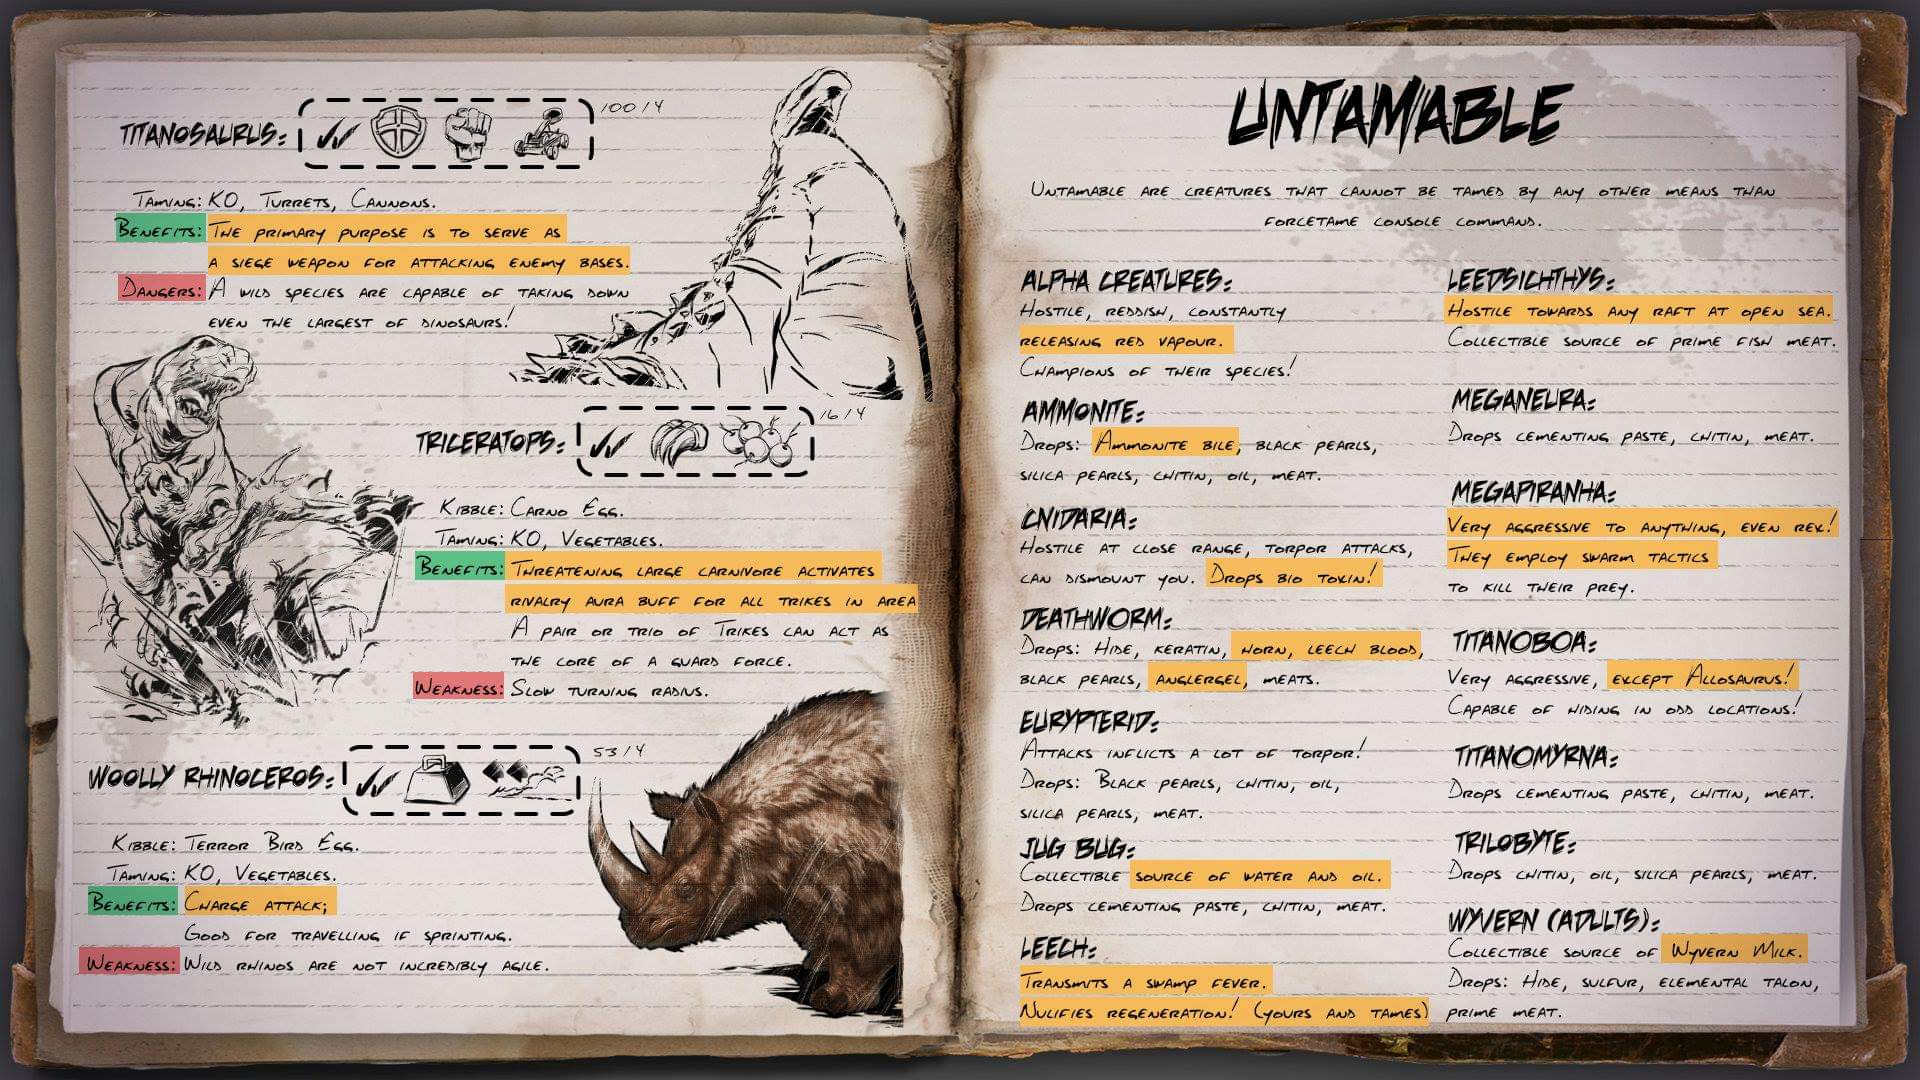 TITANOSAURUS:
100/4
TAMING: KO, TURRETS, CANNONS.
BENEFITS: THE PRIMARY PURPOSE IS TO SERVE AS
A SIEGE WEAPON FOR ATTACKING ENEMY BASES.
DANGERS: A WILD SPECIES ARE CAPABLE OF TAKING DOWN
EVEN THE LARGEST OF DINOSAURS!
TRICERATOPS:
16/4
KIBBLE: CARNO EGG.
TAMING: KO, VEGETABLES.
BENEFITS: THREATENING LARGE CARNIVORE ACTIVATES
RIVALRY AURA BUFF FOR ALL TRIKES IN AREA
A PAIR OR TRIO OF TRIKES CAN ACT AS
THE CORE OF A GUARD FORCE.
WEAKNESS: SLOW TURNING RADIUS.
WOOLLY RHINOCEROS:
53/4
KIBBLE: TERROR BIRD EGG.
TAMING: KO, VEGETABLES.
BENEFITS: CHARGE ATTACK;
GOOD FOR TRAVELLING IF SPRINTING.
WEAKNESS: WILD RHINOS ARE NOT INCREDIBLY AGILE.
UNTAMABLE
UNTAMABLE ARE CREATURES THAT CANNOT BE TAMED BY ANY OTHER MEANS THAN
FORCETAME CONSOLE COMMAND.
ALPHA CREATURES:
HOSTILE, REDDISH, CONSTANTLY
RELEASING RED VAPOUR.
CHAMPIONS OF THEIR SPECIES!
AMMONITE:
DROPS: AMMONITE BILE, BLACK PEARLS,
SILICA PEARLS, CHITIN, OIL, MEAT.
CNIDARIA:
HOSTILE AT CLOSE RANGE, TORPOR ATTACKS,
CAN DISMOUNT YOU. DROPS BIO TOXIN!
DEATHWORM:
DROPS: HIDE, KERATIN, HORN, LEECH BLOOD,
BLACK PEARLS, ANGLERGEL, MEATS.
EURYPTERID:
ATTACKS INFLICTS A LOT OF TORPOR!
DROPS: BLACK PEARLS, CHITIN, OIL,
SILICA PEARLS, MEAT.
JUG BUG:
COLLECTIBLE SOURCE OF WATER AND OIL.
DROPS CEMENTING PASTE, CHITIN, MEAT.
LEECH:
TRANSMITS A SWAMP FEVER.
NULIFIES REGENERATION! (YOURS AND TAMES)
LEEDSICHTHYS:
HOSTILE TOWARDS ANY RAFT AT OPEN SEA.
COLLECTIBLE SOURCE OF PRIME FISH MEAT.
MEGANEURA:
DROPS CEMENTING PASTE, CHITIN, MEAT.
MEGAPIRANHA:
VERY AGGRESSIVE TO ANYTHING, EVEN REX!
THEY EMPLOY SWARM TACTICS
TO KILL THEIR PREY.
TITANOBOA:
VERY AGGRESSIVE, EXCEPT ALLOSAURUS!
CAPABLE OF HIDING IN ODD LOCATIONS!
TITANOMYRNA:
DROPS CEMENTING PASTE, CHITIN, MEAT.
TRILOBYTE:
DROPS CHITIN, OIL, SILICA PEARLS, MEAT.
WYVERN (ADULTS):
COLLECTIBLE SOURCE OF WYVERN MILK.
DROPS: HIDE, SULFUR, ELEMENTAL TALON,
PRIME MEAT.